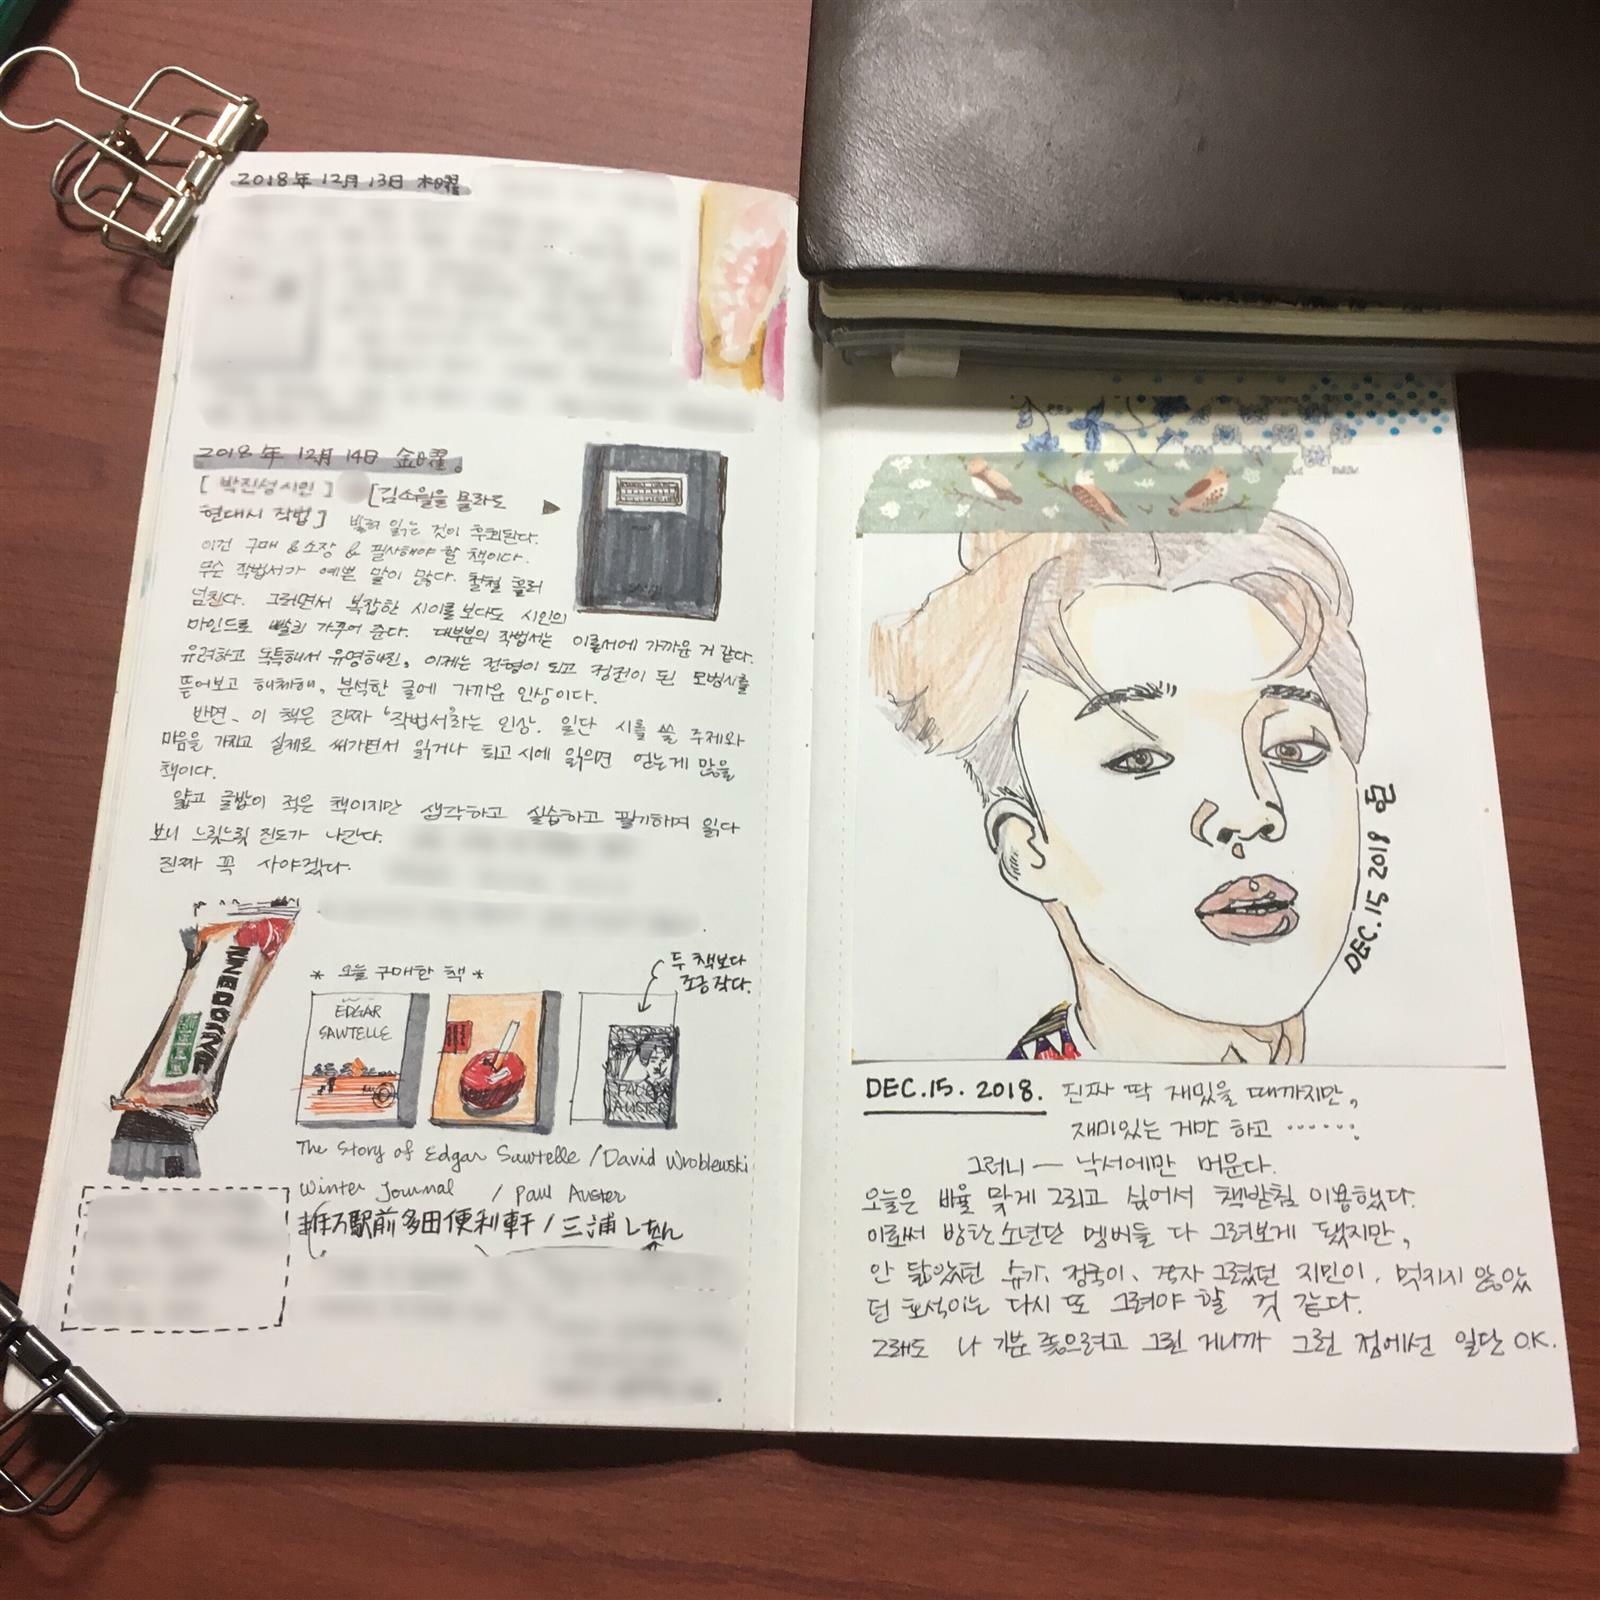 2018年 12月 13日 木曜
2018年 12月 14日 金曜
[박진성시인] [김소월을 몰라도
현대시 작법] 빌려 읽는 것이 후회된다.
이건 구매 & 소장 & 필사해야 할 책이다.
무슨 작법서가 예쁜 말이 많다. 철철 흘러
넘친다. 그러면서 복잡한 시이론보다도 시인의
마인드로 빨리 가꾸어 준다. 대부분의 작법서는 이론서에 가까운 거 같다.
유려하고 독특해서 유명해진, 이제는 전형이 되고 정전이 된 모범시를
뜯어보고 해체해, 분석한 글에 가까운 인상이다.
반면, 이 책은 진짜 '작법서'라는 인상. 일단 시를 쓸 주제와
마음을 가지고 실제로 써가면서 읽거나 퇴고 시에 읽으면 얻는게 많을
책이다.
얇고 글밥이 적은 책이지만 생각하고 실습하고 필기하며 읽다
보니 느릿느릿 진도가 나간다.
진짜 꼭 사야겠다.
* 오늘 구매한 책 *
두 책보다
조금 작다.
EDGAR
SAWTELLE
PAUL
AUSTER
The Story of Edgar Sawtelle / David Wroblewski
Winter Journal / Paul Auster
駅前多田便利軒 / 三浦しをん
DEC.15 2018
DEC.15.2018. 진짜 딱 재밌을 때까지만,
재미있는 거만 하고 ......
그러니 — 낙서에만 머문다.
오늘은 비율 맞게 그리고 싶어서 책받침 이용했다.
이로써 방탄소년단 멤버들 다 그려보게 됐지만,
안 닮았던 슈가, 정국이, 각자 그렸던 지민이, 멋지지 않았
던 호석이는 다시 또 그려야 할 것 같다.
그래도 나 기분 좋으려고 그린 거니까 그런 점에선 일단 O.K.